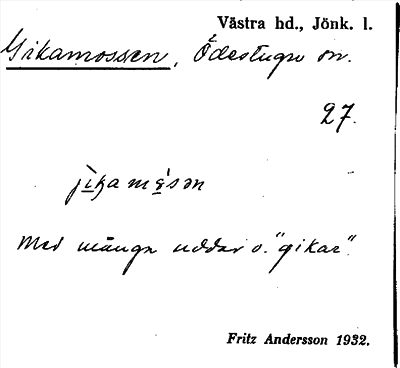 Västra hd., Jönk. l.
Gikamossen, Ödestugu sn.
27.
jìkamɷ́sən
Med många uddar o. "gikar".
Fritz Andersson 1932.